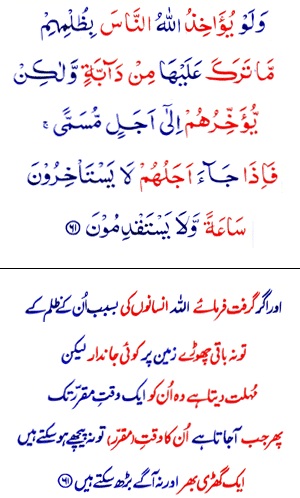 وَلَوْ يُؤَاخِذُ اللّٰهُ النَّاسَ بِظُلْمِهِمْ
مَّا تَرَكَ عَلَيْهَا مِنْ دَآبَّةٍ وَّلٰكِنْ
يُّؤَخِّرُهُمْ اِلٰٓى اَجَلٍ مُّسَمًّى ۚ
فَاِذَا جَآءَ اَجَلُهُمْ لَا يَسْتَاْخِرُوْنَ
سَاعَةً وَّلَا يَسْتَقْدِمُوْنَ ﴿۶۱﴾
اور اگر گرفت فرمائے اللہ انسانوں کی بسبب اُن کے ظلم کے
تو نہ باقی چھوڑے زمین پر کوئی جاندار لیکن
مُہلت دیتا ہے وہ اُن کو ایک وقتِ مقرّر تک
پھر جب آجاتا ہے اُن کا وقتِ (مقرّر) تو نہ پیچھے ہوسکتے ہیں
ایک گھڑی بھر اور نہ آگے بڑھ سکتے ہیں ﴿۶۱﴾